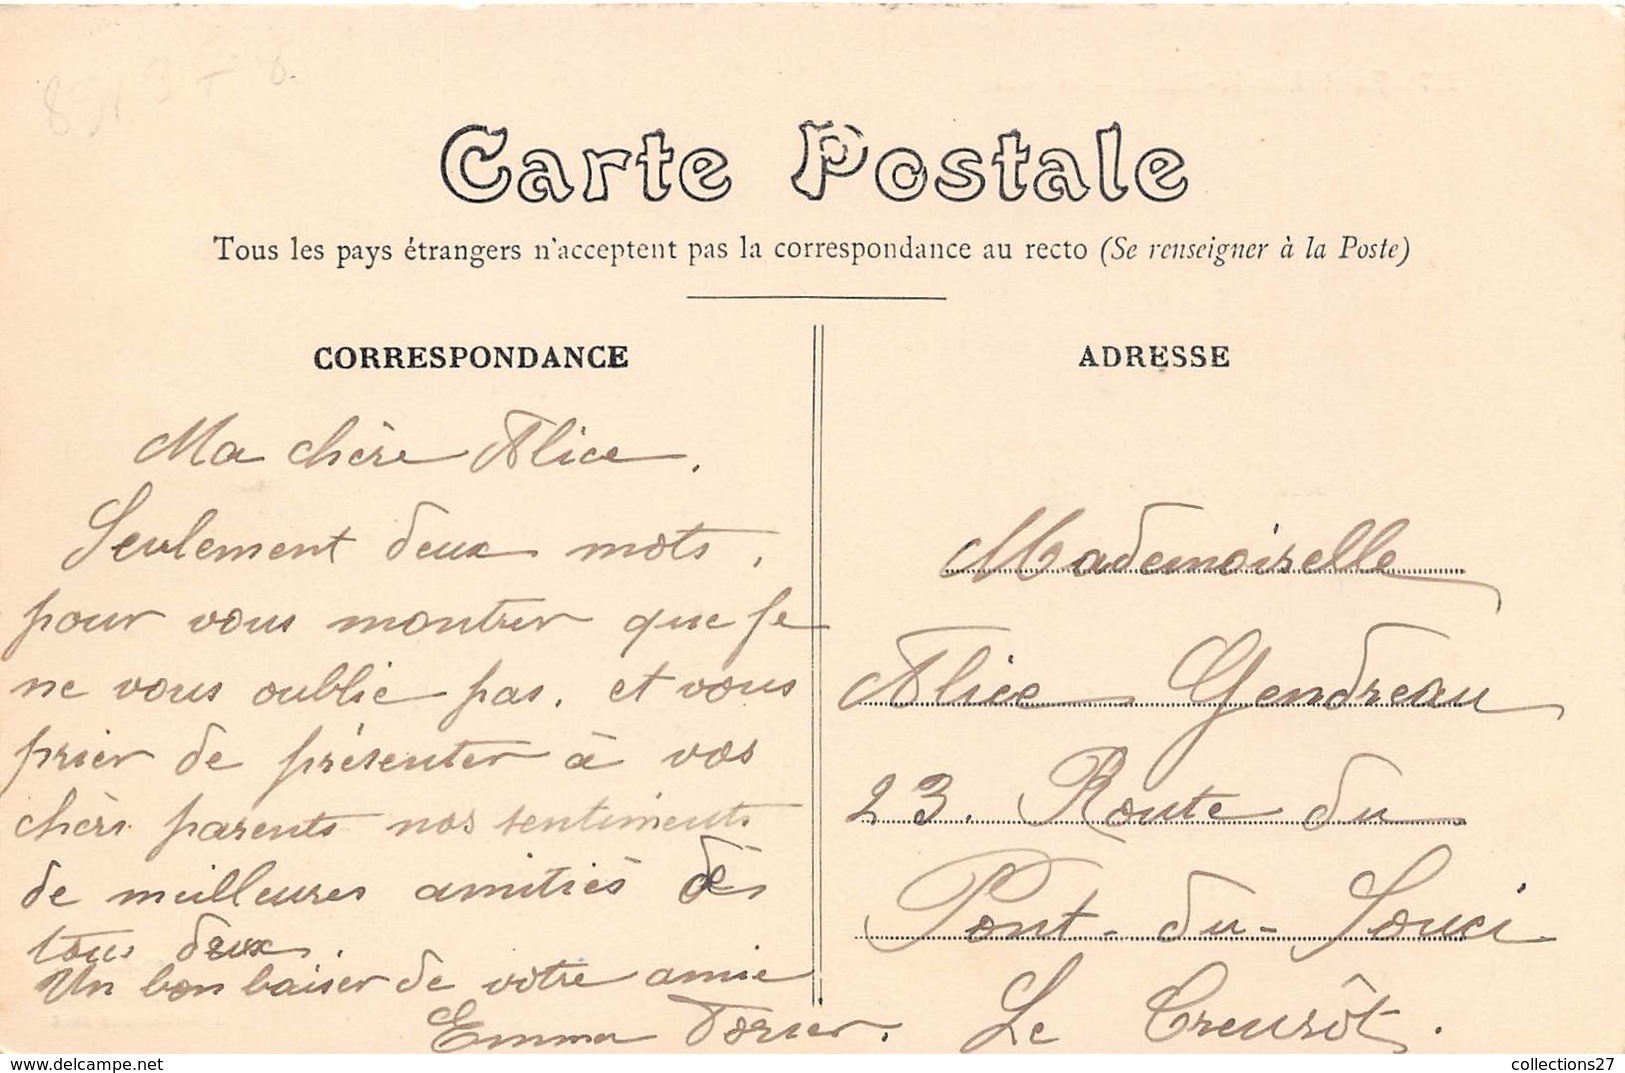 Carte Postale
Tous les pays étrangers n'acceptent pas la correspondance au recto (Se renseigner à la Poste)
CORRESPONDANCE
Ma chère Alice.
Seulement deux mots,
pour vous montrer que je
ne vous oublie pas, et vous
prier de présenter à vos
chèrs parents nos sentiments
de meilleures amitiés de
tous deux.
Un bon baiser de votre amie
Emma
ADRESSE
Mademoiselle
Alice Gendreau
23. Route du
Pont-du-Souci
Le Creusôt.
collections27